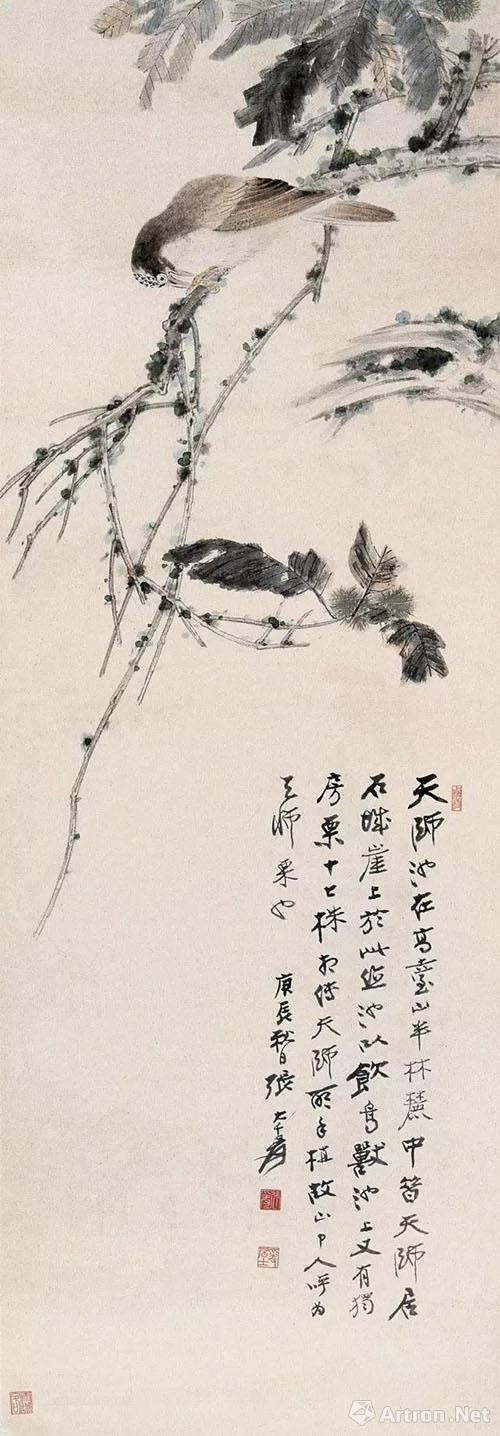 天師池在高臺山半林麓中昔天師居
石城崖上於此鑿池以飲鳥獸池上又有獨
房栗十七株相傳天師所手植故山中人呼為
天師栗也
庚辰秋日張大千爰
Artron.Net